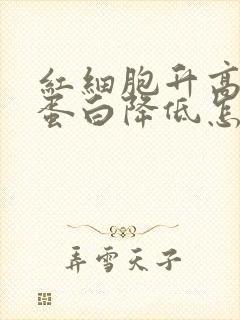 红细胞升高
蛋白降低怎
弄雪天子